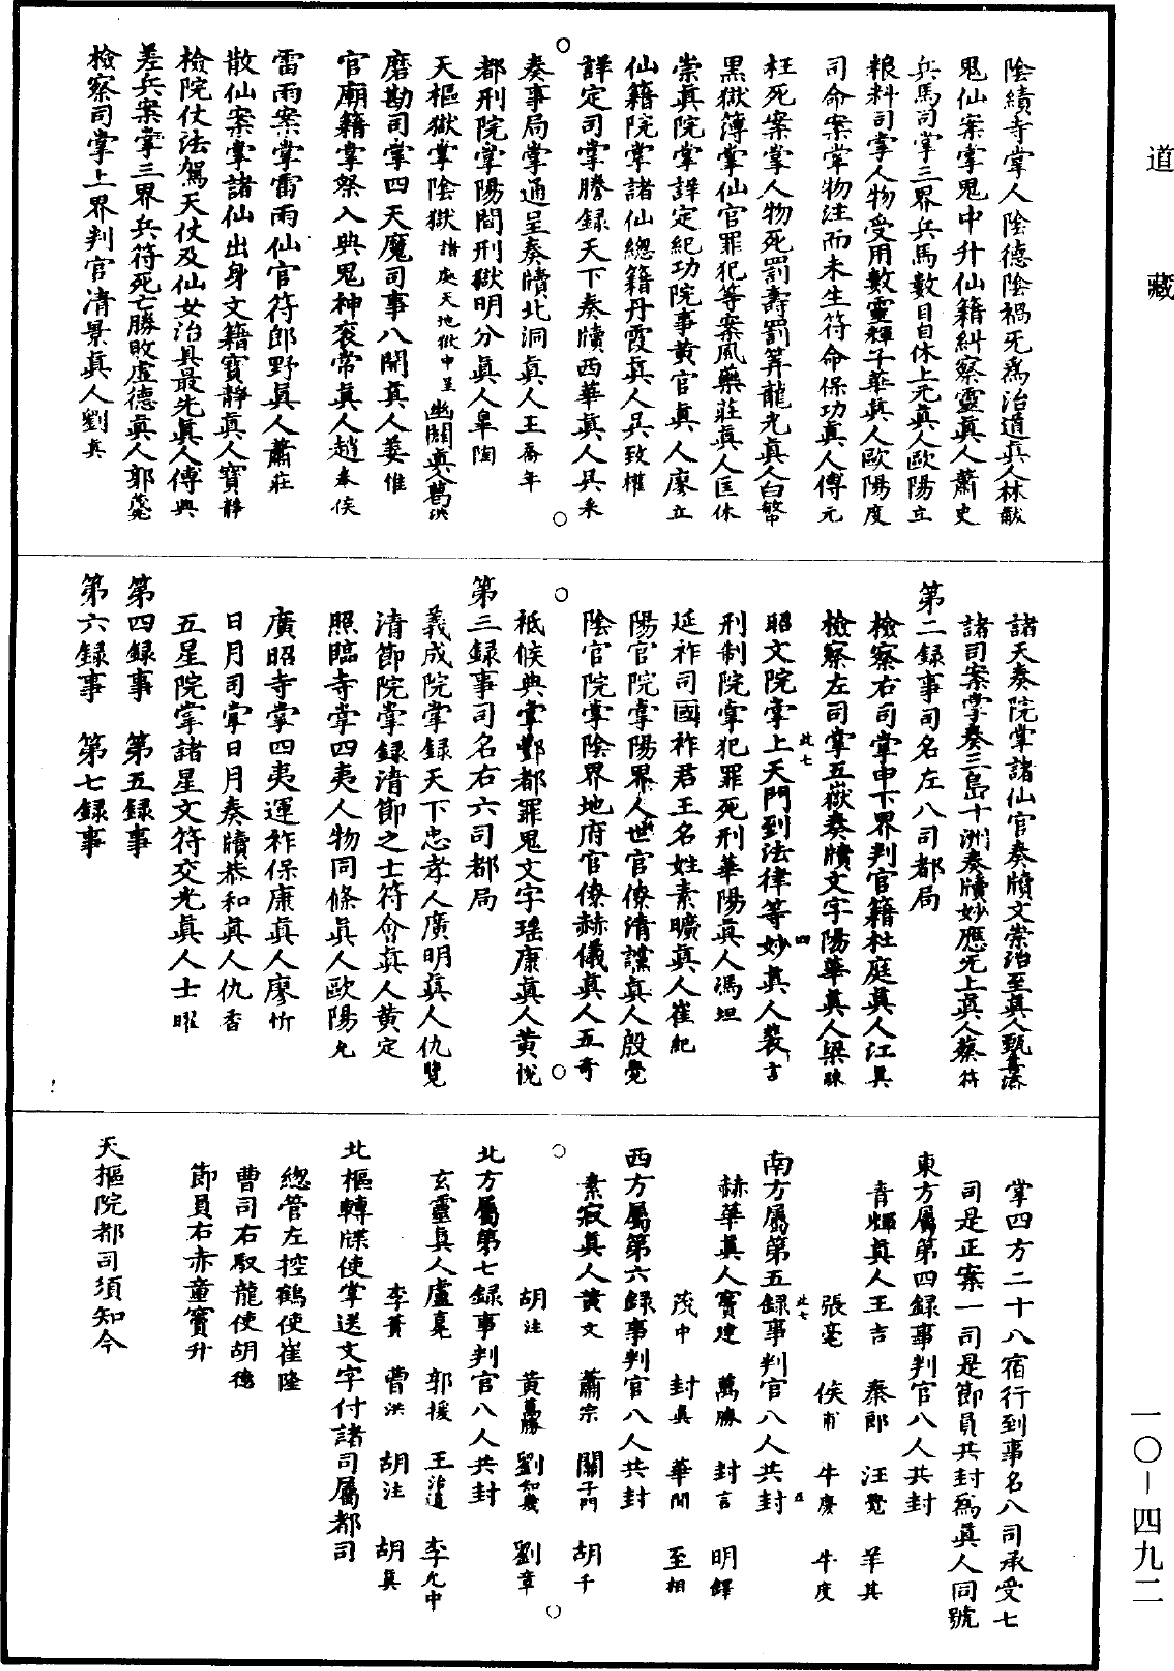 道藏
陰績寺掌人陰德陰禍死爲治道真人林
鬼仙案掌鬼中升仙籍糾察靈真人蕭史
兵馬司掌三界兵馬數目自休上元真人歐陽立
粮料司掌人物受用數靈輝子華真人歐陽度
司命案掌物注而未生符命保功真人傅元
枉死案掌人物死罰壽罰筭龍光真人白敏中
黑獄簿掌仙官罪犯等案風藥莊真人匡休
崇真院掌詳定紀功院事黄官真人廖立
仙籍院掌諸仙總籍丹霞真人吴致權
詳定司掌謄録天下奏牘西華真人吴采
奏事局掌通呈奏牘北洞真人王喬年
都刑院掌陽間刑獄明分真人臯陶
天樞獄掌陰獄諸處天地獄中呈幽關真人葛洪
磨勘司掌四天魔司事八開真人姜惟
官廟籍掌祭入典鬼神衮常真人趙奉侯
雷雨案掌雷雨仙官符郎野真人蕭莊
散仙案掌諸仙出身文籍寶静真人寶静
檢院仗法駕天仗及仙女治具最先真人傅興
差兵案掌三界兵符死亡勝敗虚德真人郭茂
檢察司掌上界判官清景真人劉真
諸天奏院掌諸仙官奏牘文崇治至真人甄
諸司案掌奏三島十洲奏牘妙應元上真人蔡符
第二録事司名左八司都局
檢察右司掌申下界判官籍杜庭真人江具
檢察左司掌五嶽奏牘文字陽華真人梁
昭文院掌上天門到法律等妙真人裴言
刑制院掌犯罪死刑華陽真人馮坦
延祚司國祚君王名姓素曠真人崔紀
陽官院掌陽界人世官僚清謀真人殷覺
陰官院掌陰界地府官僚赫儀真人五奇
祗候典掌酆都罪鬼文字瑶康真人黄悦
第三録事司名右六司都局
義成院掌録天下忠孝人廣明真人仇覽
清節院掌録清節之士符會真人黄定
照臨寺掌四夷人物同條真人歐陽允
廣昭寺掌四夷運祚保康真人廖忻
日月司掌日月奏牘恭和真人仇香
五星院掌諸星文符交光真人士曜
第四録事 第五録事
第六録事 第七録事
掌四方二十八宿行到事名八司承受七
司是正案一司是節員共封爲真人同號
東方屬第四録事判官八人共封
青輝真人王吉 秦郎 汪覽 羊其
張毫 侯甫 牛慶 牛度
南方屬第五録事判官八人共封
赫華真人寶建 萬勝 封言 明鐸
茂中 封真 華開 至相
西方屬第六録事判官八人共封
素寂真人黄文 蕭宗 關于門 胡千
胡注 黄萬勝 劉知幾 劉章
北方屬第七録事判官八人共封
玄靈真人盧毫 郭援 王治道 李允中
李黄 曹洪 胡注 胡真
北樞轉牒使掌送文字付諸司屬都司
總管左控鶴使崔隆
曹司右馭龍使胡德
節員右赤童寶升
天樞院都司須知令
此七
四
此七
五
一〇－四九二